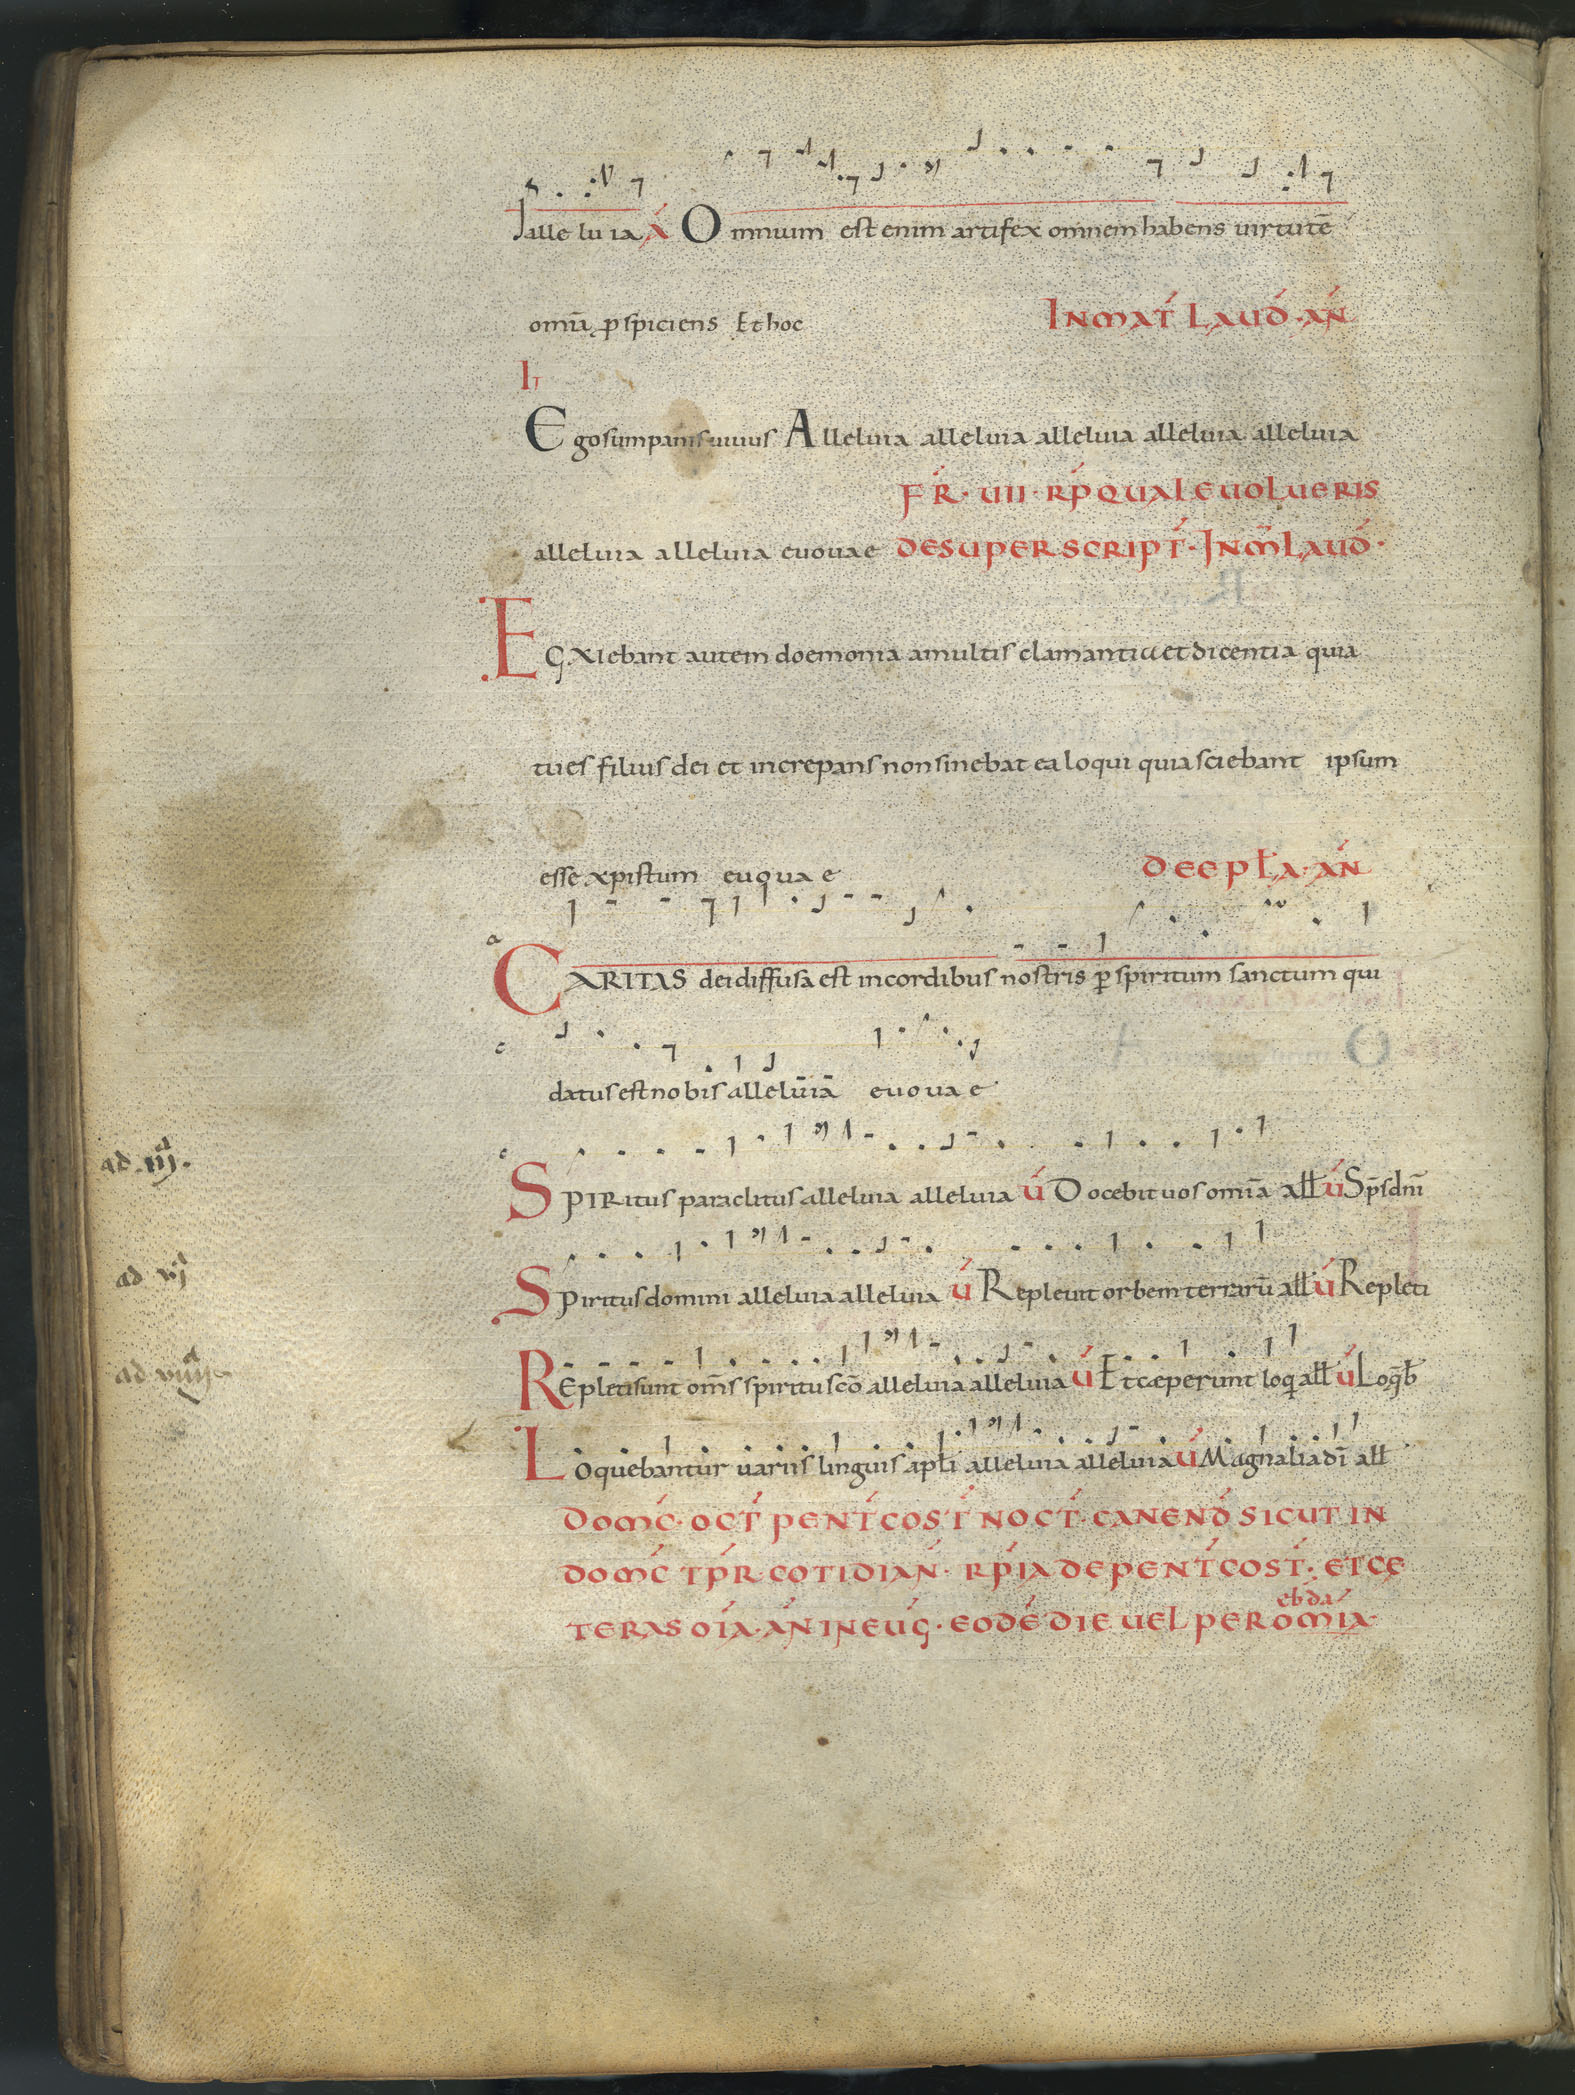 alle lu ia ẛ Omnium est enim artifex omnem habens uirtutē
omīa ꝑspiciens Et hoc INMAT́ LAUD́·AŃ
Ego sum panis uiuus Alleluia alleluia alleluia alleluia alleluia
FŔ·UII·RṔ QUALE UOLUERIS
alleluia alleluia euouae DESUPERSCRIPT́·INM̃ LAUD́·
Exiebant autem doemonia amultis clamantia et dicentia quia
tu es filius dei et increpans non sinebat ea loqui quia sciebant ipsum
esse xpistum euouae DE EPŁA·AŃ
a
CARITAS dei diffusa est in cordibus nostris ꝑ spiritum sanctum qui
c
datus est nobis alleluia euouae
c
ad iij.
SPIRitus paraclitus alleluia alleluia ú Docebit uos omīa alł ú Sp̄s dnī
ad uj
Spiritus domini alleluia alleluia ú Repleuit orbem terrarū alł ú Repleti
ad uiiij
Repleti sunt om̄s spiritu scō alleluia alleluia ú Et cæperunt loqi alł ú Loqb̄
Loquebantur uariis linguis apłi alleluia alleluia ú Magnalia dī alł
DOMĆ·OCT́ PENT́COST́ NOCT́·CANEND́ SICUT IN
DOMĆ TṔR·COTIDIAŃ·RṔIA DE PENT́COST́·ET CE
ebda
TERAS OÍA·AŃ IN EUḠ·EODÉ DIE UEL PER OMÍA·